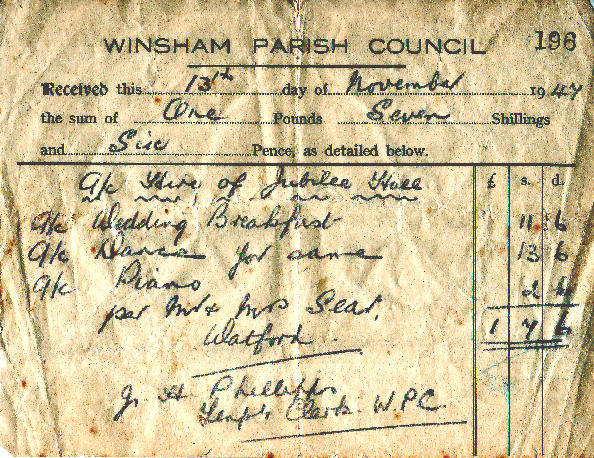 WINSHAM PARISH COUNCIL 196
Received this 13th day of November 1947
the sum of One Pounds Seven Shillings
and Six Pence, as detailed below.
a/c Hire of Jubilee Hall £ s. d.
a/c Wedding Breakfast 11 6
a/c Dance for same 13 6
a/c Piano 2 6
per Mr & Mrs Sear, 1 7 6
Watford.
J. H. Phellipps
Temp. Clerk W.P.C.